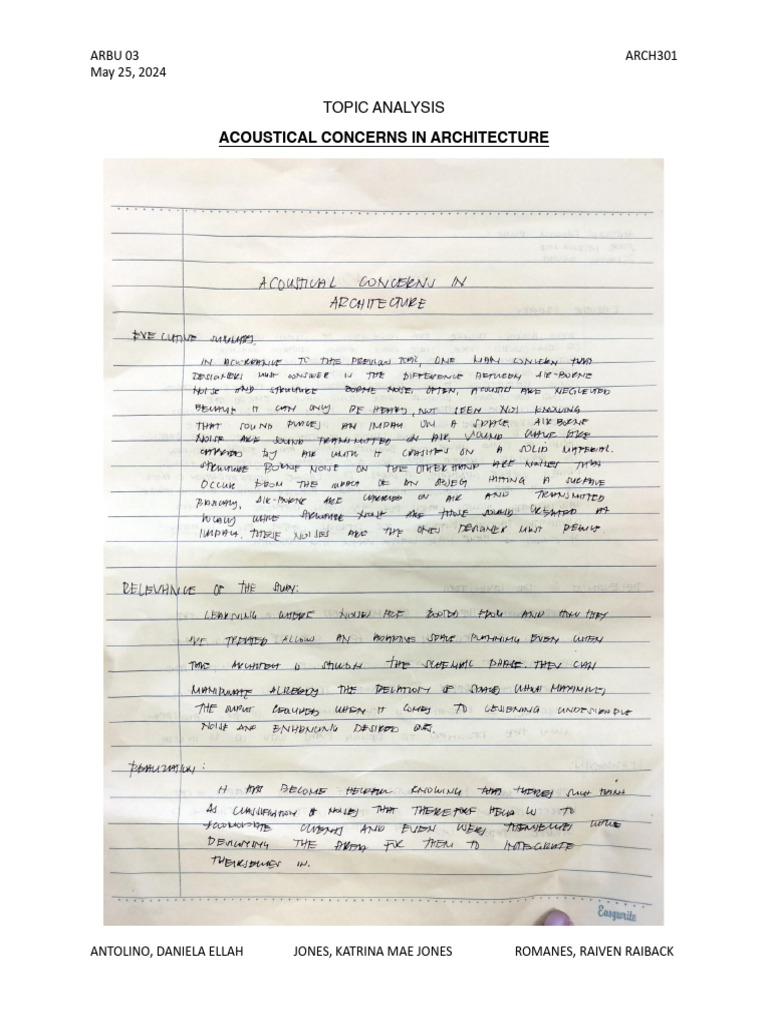 ARBU 03 ARCH301
May 25, 2024
TOPIC ANALYSIS
ACOUSTICAL CONCERNS IN ARCHITECTURE
ACOUSTICAL CONCERNS IN
ARCHITECTURE
EXECUTIVE SUMMARY.
IN ACCORDANCE TO THE PREVIOUS TOPIC, ONE MAIN CONCERN THAT
DESIGNERS MUST CONSIDER IS THE DIFFERENCE BETWEEN AIR-BORNE
NOISE AND STRUCTURE BORNE NOISE, OFTEN, ACOUSTICS ARE NEGLECTED
BECAUSE IT CAN ONLY BE HEARD, NOT SEEN NOT KNOWING
THAT SOUND PLACES AN IMPACT ON A SPACE. AIR BORNE
NOISE ARE SOUND TRANSMITTED ON AIR, SOUND WAVES ARE
CARRIED BY AIR UNTIL IT CRASHES ON A SOLID MATERIAL.
STRUCTURE BORNE NOISE ON THE OTHER HAND ARE NOISES THAT
OCCUR FROM THE IMPACT OF AN OBJECT HITTING A SURFACE
BASICALLY, AIR-BORNE ARE CARRIED ON AIR AND TRANSMITTED
WHILE STRUCTURE NOISE ARE THOSE SOUND CREATED AT
IMPACT. THESE NOISES ARE THE ONES DESIGNER MUST REDUCE.
RELEVANCE OF THE STUDY:
LEARNING WHERE NOISES ARE ROOTED FROM AND HOW THEY
ARE TREATED ALLOW AN ADAPTIVE SPACE PLANNING EVEN WHEN
THE ARCHITECT IS STILL ON THE SCHEMATIC PHASE. THEY CAN
MANIPULATE ALREADY THE RELATION OF SPACES WHAT MAXIMIZES
THE OUTPUT REQUIRED WHEN IT COMES TO LESSENING UNDESIRABLE
NOISE AND ENHANCING DESIRED
REALIZATION:
IT HAS BECOME HELPFUL KNOWING THAT THERE'S SUCH THING
AS CLASSIFICATION OF NOISES THAT THEREFORE HELPS US TO
ACCOMODATE CLIENTS AND EVEN USERS THEMSELVES WHILE
DESIGNING THE AREA FOR THEM TO INTEGRATE
THEIRSELVES IN.
Easywrite
ANTOLINO, DANIELA ELLAH JONES, KATRINA MAE JONES ROMANES, RAIVEN RAIBACK